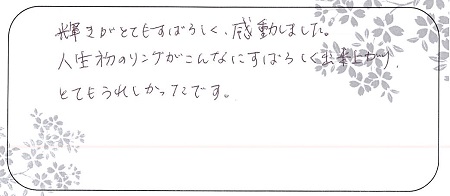 輝きがとてもすばらしく、感動しました。
人生初のリングがこんなにすばらしく出来上がり、
とてもうれしかったです。